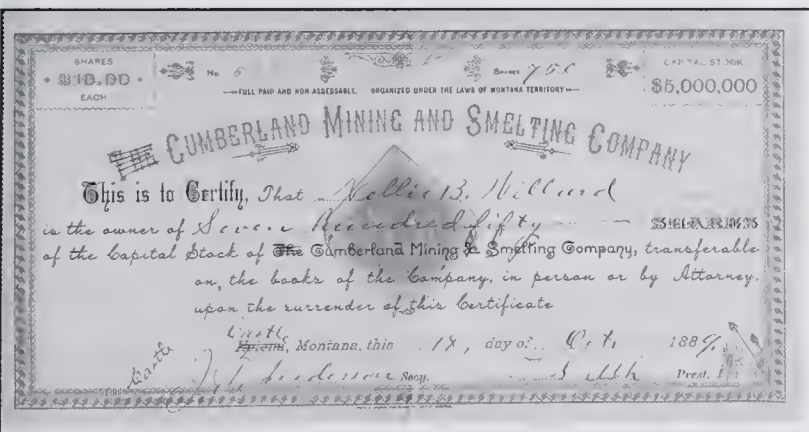 SHARES
$10.00
EACH
No. 5
SHARES 750
CAPITAL STOCK
$5,000,000
FULL PAID AND NON ASSESSABLE. ORGANIZED UNDER THE LAWS OF MONTANA TERRITORY
THE CUMBERLAND MINING AND SMELTING COMPANY
This is to Certify, That Nellie B. Hilland
is the owner of Seven Hundred fifty SHARES
of the Capital Stock of The Cumberland Mining & Smelting Company, transferable
on the books of the Company, in person or by Attorney,
upon the surrender of this Certificate
Castle
Montana, this 18, day of Oct. 1889.
Castle
Secy. Prest.